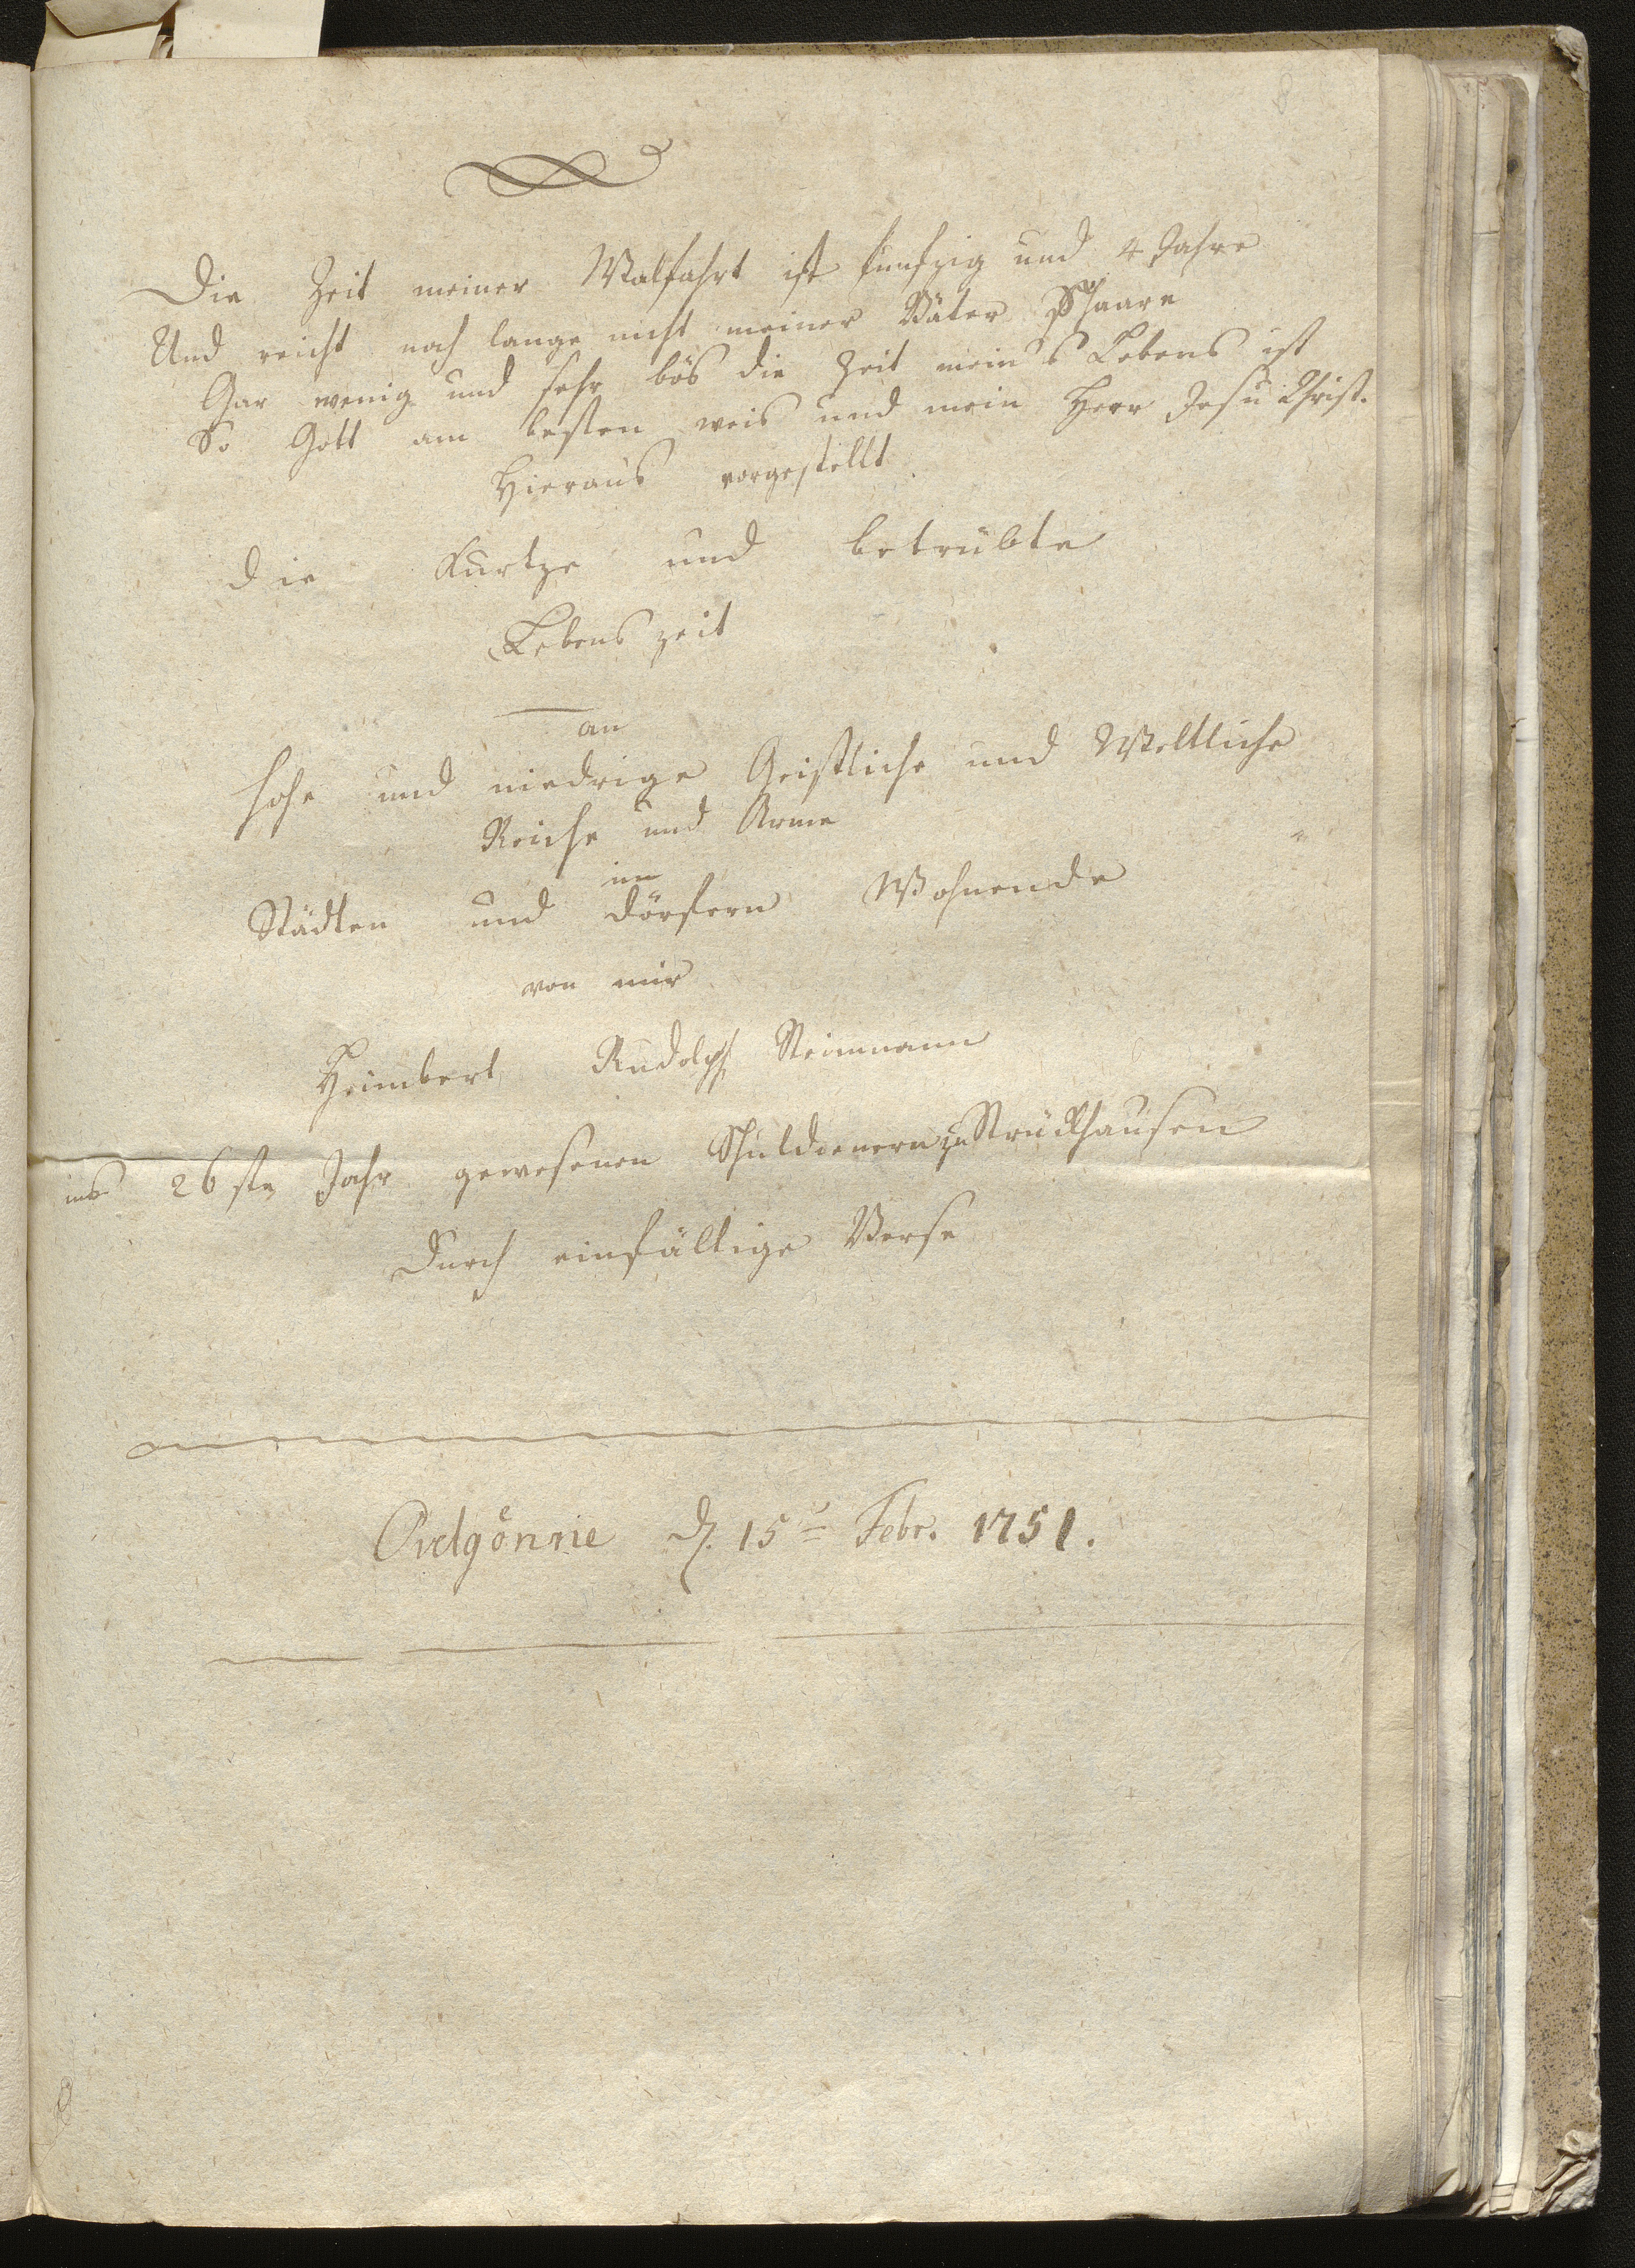 8
Die Zeit meiner Walfahrt ist funfzig und 4 Jahre
Und reicht noch lange nicht meiner Väter Schaare
Gar wenig und sehr bös die Zeit meines Lebens ist
So Gott am besten weis und mein Herr Jesu Christ.
Hieraus vorgestellt
die Kurtze und betrübte
Lebens zeit
an
hohe und niedrige Geistliche und Weltliche
Reiche und Arme
in
Städten und dörfern Wohnende
von mir
Heimbert Rudolph Steinmann
ins 26 ste Jahr gewesenen Schuldienern zu Strückhausen
Durch einfältige Verse
Ovelgönnie d. 15 Febr. 1751.